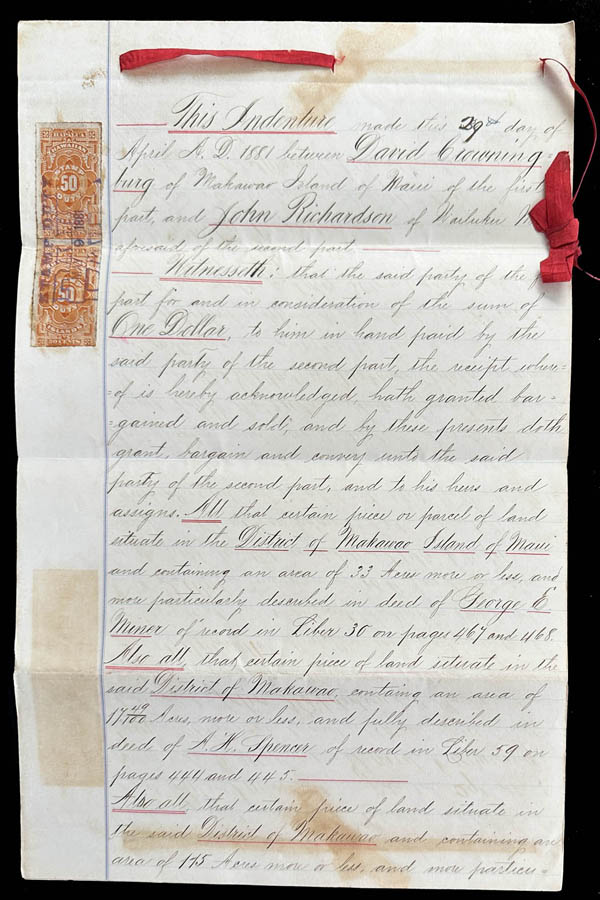 This Indenture made this 29th day of
April A. D. 1881 between David Crowning-
burg of Makawao Island of Maui of the first
part, and John Richardson of Wailuku
aforesaid of the second part,
Witnesseth: that the said party of the
part for and in consideration of the sum of
One Dollar, to him in hand paid by the
said party of the second part, the receipt where=
=of is hereby acknowledged, hath granted bar-
-gained and sold, and by these presents doth
grant, bargain and convey unto the said
party of the second part, and to his heirs and
assigns. All that certain piece or parcel of land
situate in the District of Makawao Island of Maui
and containing an area of 33 Acres more or less, and
more particularly described in deed of George E.
Minor of record in Liber 30 on pages 467 and 468.
Also all that certain piece of land situate in the
said District of Makawao, containg an area of
17 49/100 Acres, more or less, and fully described in
deed of A. H. Spencer of record in Liber 59 on
pages 444 and 445.
Also all that certain piece of land situate in
the said District of Makawao and containing an
area of 175 Acres more or less, and more particu=
HAWAIIAN
STAMP
50
50
ISLANDS